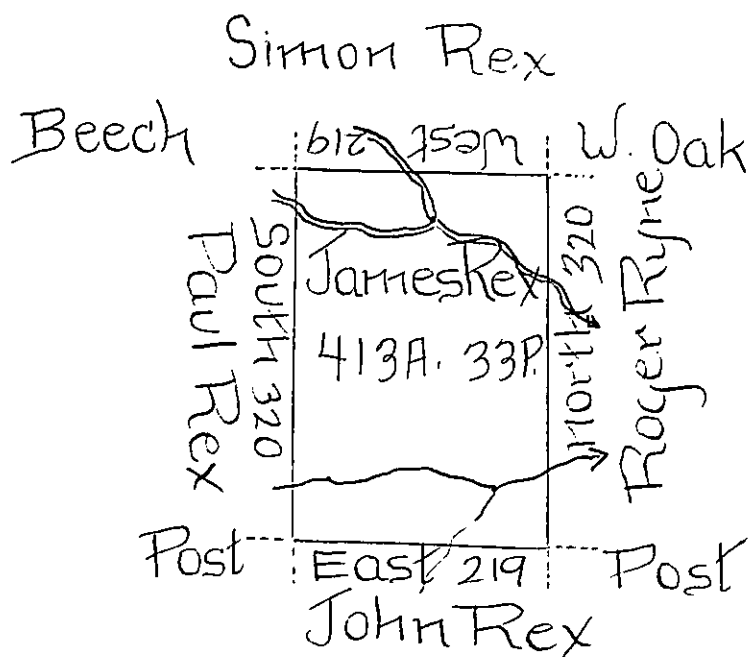 Simon Rex
Beech
West 219
W. Oak
Paul Rex
South 320
James Rex
413A. 33P.
North 320
Roger Ryne
Post
East 219
Post
John Rex